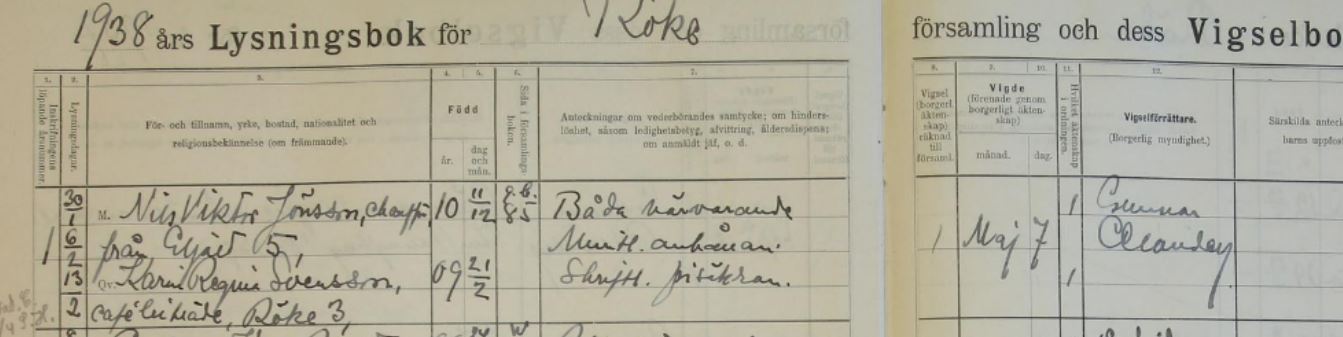 1938 års Lysningsbok för Röke
församling och dess Vigselbo
1. 2. 3. 4. 5. 6. 7.
8. 9. 10. 11. 12.
Inskrifningens löpande årsnummer.
Lysningsdagar.
För- och tillnamn, yrke, bostad, nationalitet och
religionsbekännelse (om främmande).
Född
år.
dag
och
mån.
Sida i församlings-
boken.
Anteckningar om vederbörandes samtycke; om hinders-
löshet, såsom ledighetsbetyg, afvittring, åldersdispens;
om anmäldt jäf, o. d.
Vigsel
(borgerl.
äkten-
skap)
räknad
till
församl.
Vigde
(förenade genom
borgerligt äkten-
skap)
månad. dag.
Hvilket äktenskap
i ordningen.
Vigselförrättare.
(Borgerlig myndighet.)
Särskilda anteck
barns uppfos
30/1 M. Nils Viktor Jönsson, 10 11/12 85 Båda närvarande
1 6/2 från 5, Muntl.
13 Qv. Karin Regina Svensson, 09 21/2 Skriftl.
2 Röke 3,
1 Maj 7 1 Gunnar
1